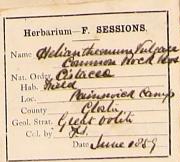 Herbarium—F. SESSIONS.
Name Helianthemum Vulgare
Common Rock Rose
Nat. Order Cistaceæ
Hab. Field
Loc. Painswick Camp
County
Geol. Strat. Great Oolite
Col. by F.S.
Date June 1869